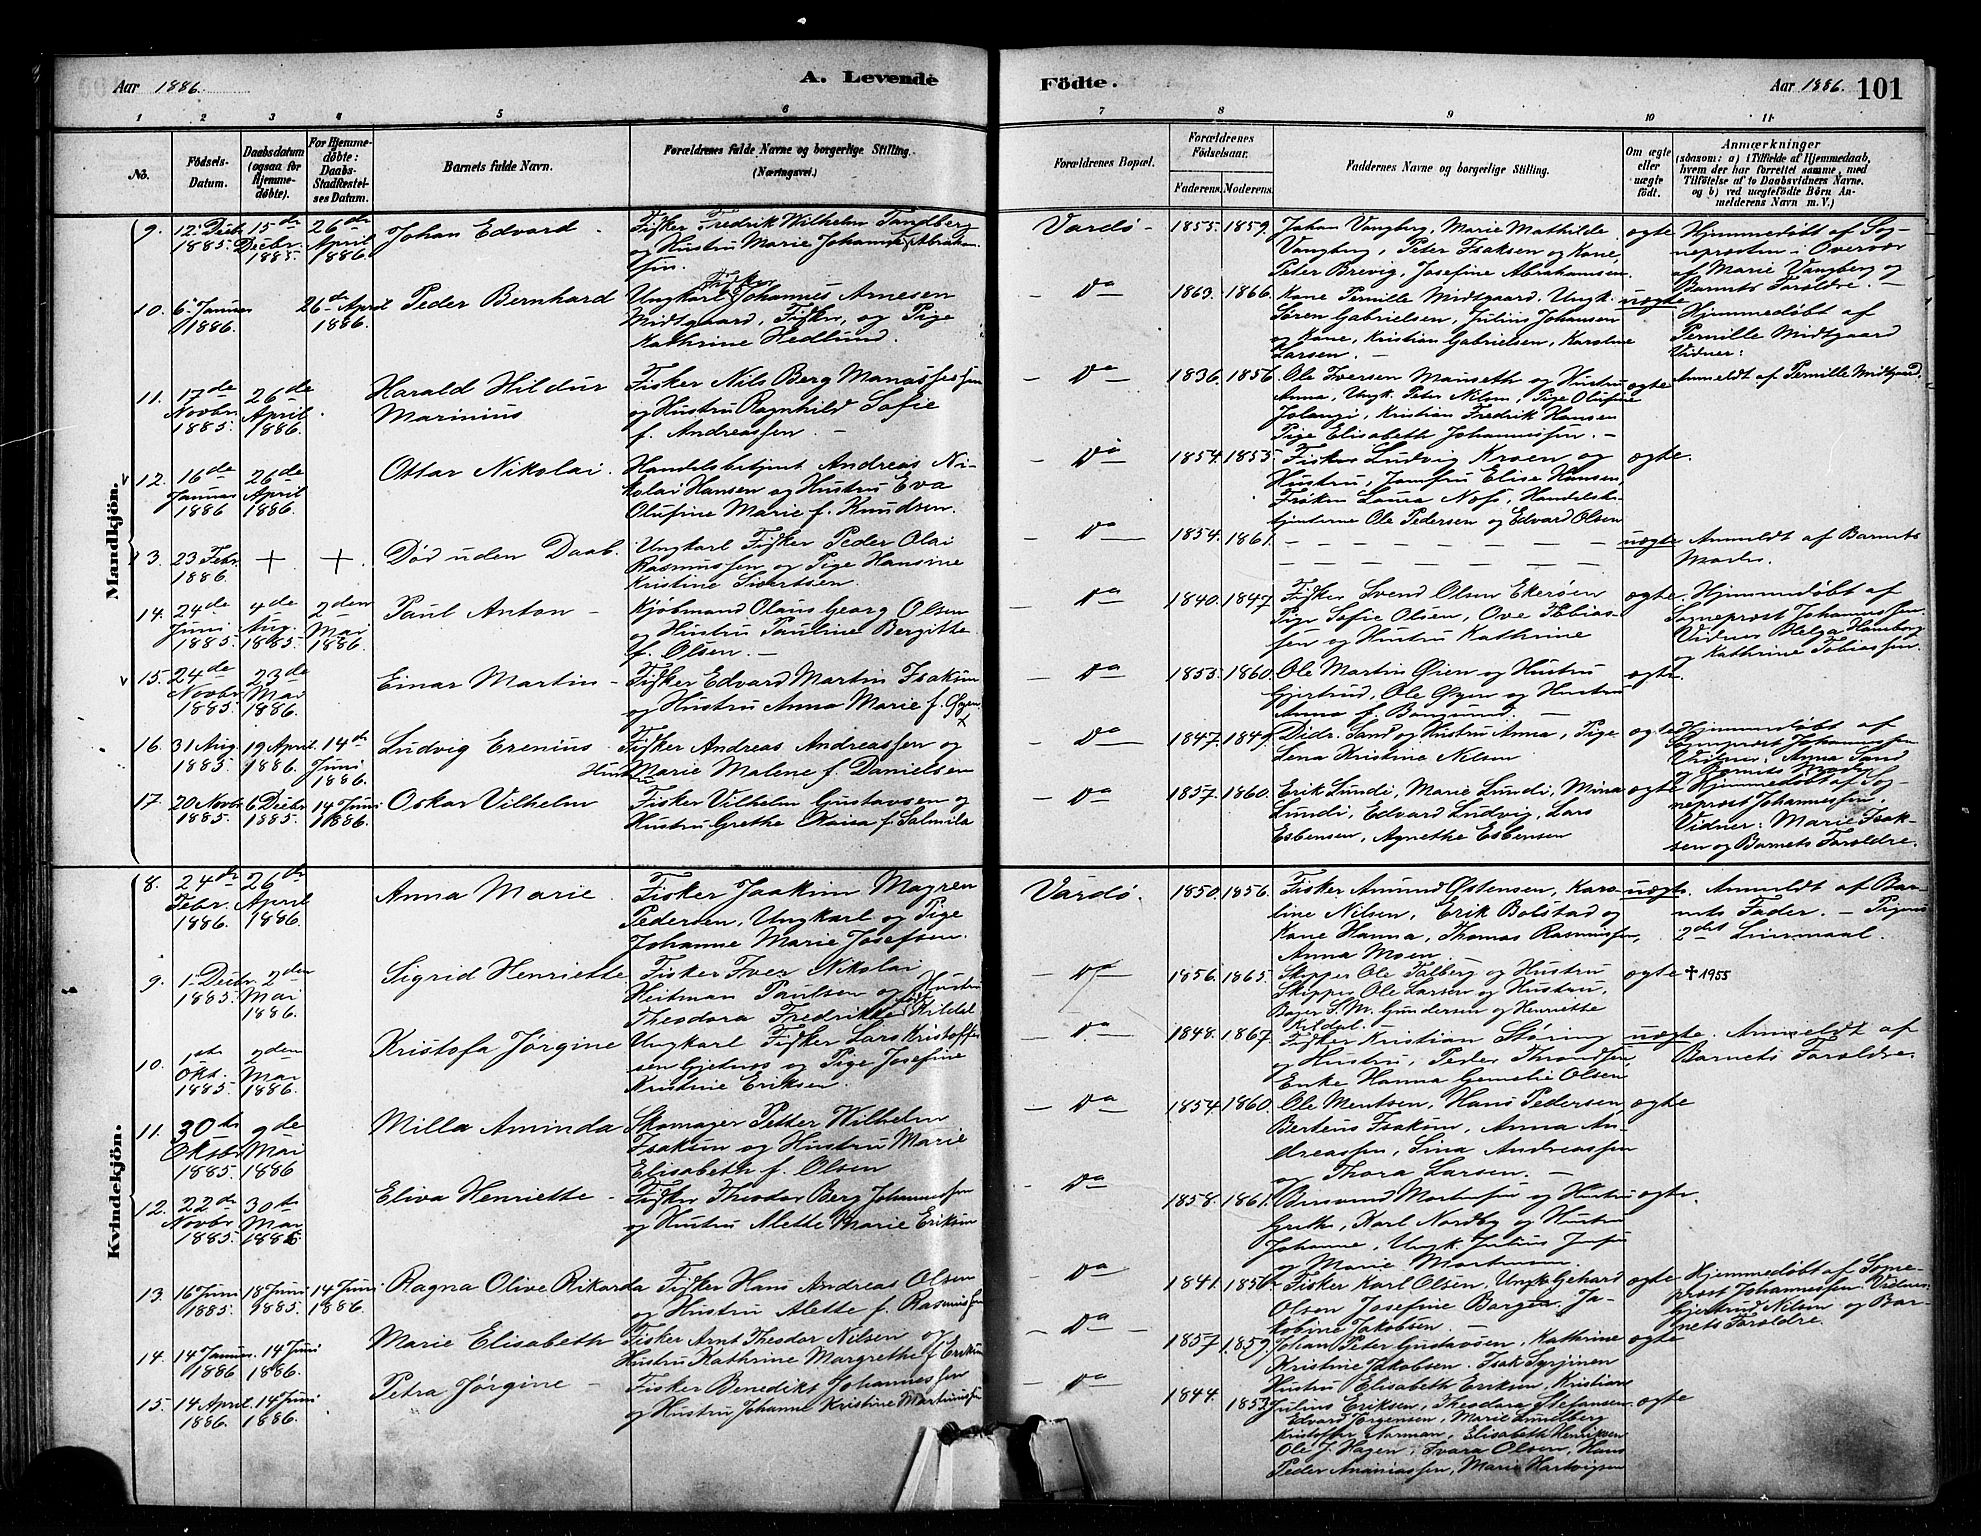 Aar 1886.
A. Levende
Födte.
Aar 1886. 101
1 2 3 4 5 6 7 8 9 10 11
No.
Födsels-Datum.
Daabsdatum (ogsaa for Hjemmedöbte).
For Hjemmedöbte: Daabs-Stadfæstelses Datum.
Barnets fulde Navn.
Forældrenes fulde Navne og borgerlige Stilling. (Næringsvei.)
Forældrenes Bopæl.
Forældrenes Födselsaar.
Faderens. Moderens.
Faddernes Navne og borgerlige Stilling.
Om ægte eller uægte födt.
Anmærkninger (saasom: a) i Tilfælde af Hjemmedaab, hvem der har forrettet samme, med Tilföielse af to Daabsvidners Navne, og b) ved uægtefödte Börn Anmelderens Navn m. V.)
Mandkjön.
9. 12. Decbr. 1885. 15de Decbr. 1885. 26de April 1886.
Johan Edvard
Fisker Fredrik Wilhelm Tandberg
og Hustru Marie Johanne f. Abraham-
sen.
Vardö 1855. 1859.
Johan Vangberg, Marie Mathilde
Vangberg, Peter Isaksen og Kone,
Peter Brevig, Josefine Abrahamsen.
ægte
Hjemmedöbt af Sog-
neprosten i Overvær
af Marie Vangberg og
Barnets Forældre.
10. 6. Januar 1886. 26de April 1886.
Peder Bernhard
Fisker
Ungkarl Johannes Arnesen
Midtgaard, Fisker, og Pige
Kathrine Hedlund.
Do 1863. 1866.
Kone Pernille Midtgaard. Ungk.
Sören Gabrielsen, Julius Johansen
og Kone, Kristian Gabrielsen, Karoline
Larsen.
uægte
Hjemmedöbt af
Pernille Midtgaard
Vidner:
Anmeldt af Pernille Midtgaard.
11. 17de Novbr. 1885. 26de April 1886.
Harald Hildur
Marinius
Fisker Nils Berg Manassesen
og Hustru Ragnhild Sofie
f. Andreassen.
Do 1836. 1856.
Ole Iversen Mauseth og Hustru
Anna, Ungk. Peter Nilsen, Pige Olufine
Jolangi, Kristian Fredrik Hansen
Pige Elisabeth Johannessen.
ægte
12. 16de Januar 1886 26de April 1886.
Ottar Nikolai.
Handelsbetjent Andreas Ni-
kolai Hansen og Hustru Eva
Olufine Marie f. Knudsen.
Do 1854. 1855.
Fisker Ludvig Kroen og
Hustru, Jomfru Elise Hansen,
Fröken Laura, Handelsbe-
tjenterne Ole Pedersen og Edvard Olsen
ægte.
13. 23 Febr. 1886. + +
Död uden Daab.
Ungkarl Fisker Peder Olai
Rasmussen og Pige Hansine
Kristine Sivertsen.
Do 1854. 1861.
uægte
Anmeldt af Barnets
Moder.
14. 24de Juni 1885. 4de Aug. 1885. 2den Mai 1886.
Paul Anton
Kjöbmand Olaus Georg Olsen
og Hustru Pauline Bergitte
f. Olsen.
Do 1840. 1847
Fisker Svend Olsen Ekeröen
Pige Sofie Olsen, Ove Tobias-
sen og Hustru Kathrine
ægte.
Hjemmedöbt af
Sogneprost Johannessen.
Vidner Helga
og Kathrine Tobiassen.
15. 24de Novbr. 1885. 23de Mai 1886.
Einar Martin
Fisker Edvard Martin Isaksen
og Hustru Anna Marie f. Öyen
Do 1855. 1860.
Ole Martin Öien og Hustru
Gjertrud, Ole Öyen og Hustru
Anna f.
ægte.
16. 31 Aug. 1885. 19 April 1886. 14de Juni 1886.
Ludvig Erenius
Fisker Andreas Andreassen og
Hustru Marie Malene f. Danielsen
Do 1847. 1849.
Didr. Sand og Hustru Anna, Pige
Lena Kristine Nilsen
ægte
Hjemmedöbt af
Sogneprost Johannessen
Vidner: Anna Sand
og Barnets Moder
17. 20 Novbr. 1885. 6 Decbr. 1885. 14 Juni 1886.
Oskar Vilhelm
Fisker Vilhelm Gustavsen og
Hustru Grethe Kaisa f. Salmila
Do 1857. 1860.
Erik Lundi, Marie Lundi, Mina
Lundi, Edvard Ludvig, Lars
Esbensen, Agnethe Esbensen
ægte
Hjemmedöbt af Sog-
neprost Johannessen.
Vidner: Marie Isak-
sen og Barnets Forældre.
Kvindekjön.
8. 24de Febr. 1886. 26de April 1886.
Anna Marie.
Fisker Joakim Magren
Pedersen, Ungkarl og Pige
Johanne Marie Josefsen.
Vardö. 1850. 1856.
Fisker Amund Östensen, Karo-
line Nilsen, Erik Bolstad og
Kone Hanna, Thomas Rasmussen,
Anna Moen.
uægte.
Anmeldt af Bar-
nets Fader. – Pigens
2det Leiermaal.
9. 1. Decbr. 1885. 2den Mai 1886.
Sigrid Henriette
Fisker Iver Nikolai
Heitman Paulsen og Hustru
Theodora Fredrikke f. Kildal
Do 1856. 1865.
Skipper Ole Talberg og Hustru
Skipper Ole Larsen og Hustru,
Bager S. M. Gundersen og Henriette
Kildal.
ægte
† 1955
10. 1ste Okt. 1885. 2den Mai 1886.
Kristofa Jörgine
Ungkarl Fisker Lars Kristoffer-
sen Gjetnes og Pige Josefine
Kristine Eriksen.
Do 1848. 1867
Fisker Kristian Störing
og Hustru, Peder Throndsen,
Enke Hanna Gemelie Olsen,
uægte.
Anmeldt af
Barnets Forældre.
11. 30te Oktbr. 1885. 9de Mai 1886
Milla Aminda
Skomager Petter Wilhelm
Isaksen og Hustru Marie
Elisabeth f. Olsen
Do 1854. 1860.
Ole Mentsen, Hans Pedersen,
Berteus Isaksen, Anna An-
dreassen, Lina Andreassen
og Thora Larsen.
ægte
12. 22de Novbr. 1885. 30te Mai 1886.
Eliva Henriette
Fisker Theodor Berg Johannessen
og Hustru Alette Marie Eriksen
Do 1858. 1861.
og Hustru
Grethe, Karl Nordby og Hustru
Johanne, Ungk. Julius
og Marie
ægte.
13. 16 Juni 1885. 18 Juni 1885. 14 Juni 1886.
Ragna Olive Rikarda
Fisker Hans Andreas Olsen
og Hustru Alette f. Rasmussen
Do 1841. 1850.
Fisker Karl Olsen, Ungk. Gehard
Olson Josefine Borgen. Ja-
kobine Jakobsen.
ægte
Hjemmedöbt af Sogne-
prost Johannessen Vidner.
Gjertrud Nilsen og Bar-
nets Forældre.
14. 14 Januar. 1886 14 Juni 1886.
Marie Elisabeth
Fisker Arnt Theodor Nilsen og
Hustru Kathrine Margrethe f. Eriksen
Do 1857. 1859.
Johan Peter Gustavsen, Kathrine
Kristine Jakobsen. Isak Syrjinen
Hustru Elisabeth Eriksen, Kristian
ægte
15. 14 April 1886. 14 Juni 1886.
Petra Jörgine
Fisker Benedikt Johannessen
og Hustru Johanne Kristine Martinussen
Do 1844. 1853.
Julius Eriksen, Theodora Stefansen.
Edvard Jörgensen, Marie Lundberg
Kristoffer Norman, Elisabeth Henriksen
Ole J. Hagen, Ivara Olsen, Hans
Peder Ananiassen, Marie Hartvigsen
ægte